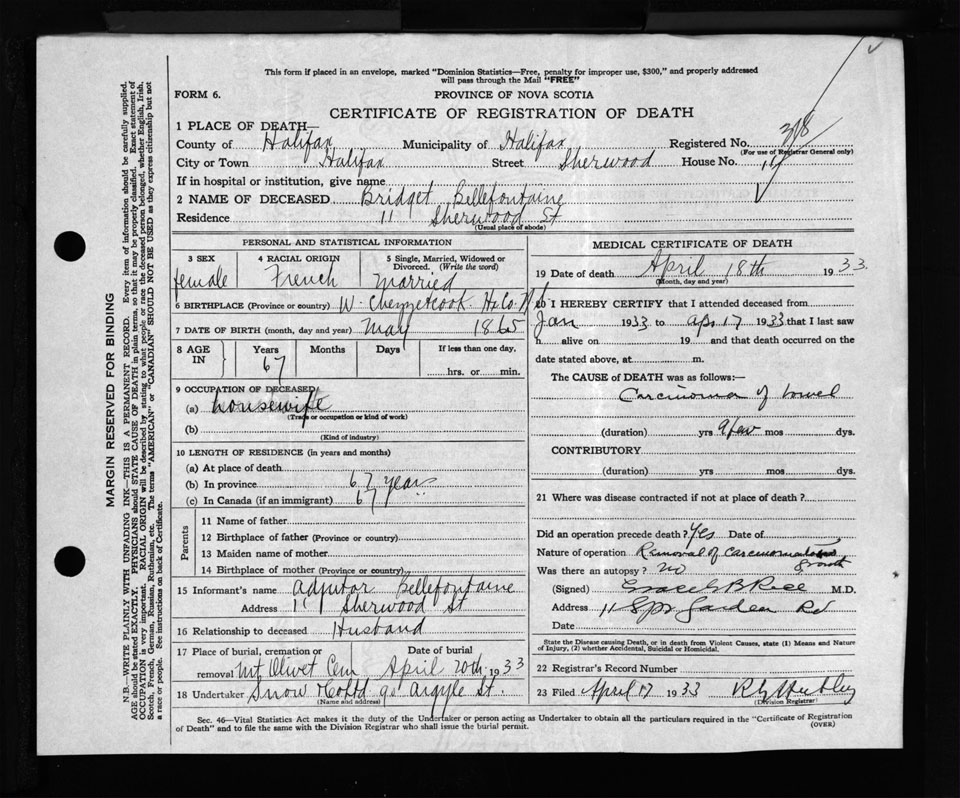 This form if placed in an envelope, marked "Dominion Statistics—Free, penalty for improper use, $300," and properly addressed
will pass through the Mail "FREE"
FORM 6.
PROVINCE OF NOVA SCOTIA
CERTIFICATE OF REGISTRATION OF DEATH
1 PLACE OF DEATH—
County of Halifax Municipality of Halifax Registered No. 318
(For use of Registrar General only)
City or Town Halifax Street Sherwood House No. 11
If in hospital or institution, give name
2 NAME OF DECEASED Bridget Bellefontaine
Residence 11 Sherwood St
(Usual place of abode)
PERSONAL AND STATISTICAL INFORMATION
3 SEX 4 RACIAL ORIGIN 5 Single, Married, Widowed or
Divorced. (Write the word)
female French Married
6 BIRTHPLACE (Province or country) W. Chezzetcook Hx Co. N.S.
7 DATE OF BIRTH (month, day and year) May 1865
8 AGE IN Years Months Days If less than one day,
67 hrs. or min.
9 OCCUPATION OF DECEASED
(a) housewife
(Trade or occupation or kind of work)
(b)
(Kind of industry)
10 LENGTH OF RESIDENCE (in years and months)
(a) At place of death
(b) In province 67 years
(c) In Canada (if an immigrant) 67 "
Parents
11 Name of father
12 Birthplace of father (Province or country)
13 Maiden name of mother
14 Birthplace of mother (Province or country)
15 Informant's name Adjutor Bellefontaine
Address 11 Sherwood St
16 Relationship to deceased Husband
17 Place of burial, cremation or Date of burial
removal Mt Olivet Cem April 20th 1933
18 Undertaker Snow & Co Ltd 90 Argyle St.
(Name and address)
MEDICAL CERTIFICATE OF DEATH
19 Date of death April 18th 1933.
(Month, day and year)
20 I HEREBY CERTIFY that I attended deceased from
Jan 1933 to Apr 17 1933 that I last saw
h alive on 19 and that death occurred on the
date stated above, at m.
The CAUSE of DEATH was as follows:—
Carcinoma of bowel
(duration) yrs a few mos dys.
CONTRIBUTORY
(duration) yrs mos dys.
21 Where was disease contracted if not at place of death?
Did an operation precede death? Yes Date of
Nature of operation Removal of carcinomatous
growth
Was there an autopsy? no
(Signed) B Rice M.D.
Address 118 Spr Garden Rd
Date
State the Disease causing Death, or in death from Violent Causes, state (1) Means and Nature
of Injury, (2) whether Accidental, Suicidal or Homicidal.
22 Registrar's Record Number
23 Filed April 17 1933
(Division Registrar)
Sec. 46—Vital Statistics Act makes it the duty of the Undertaker or person acting as Undertaker to obtain all the particulars required in the "Certificate of Registration
of Death" and to file the same with the Division Registrar who shall issue the burial permit.
(OVER)
MARGIN RESERVED FOR BINDING
N.B.—WRITE PLAINLY WITH UNFADING INK—THIS IS A PERMANENT RECORD. Every item of information should be carefully supplied.
AGE should be stated EXACTLY. PHYSICIANS should STATE CAUSE OF DEATH in plain terms, so that it may be properly classified. Exact statement of
OCCUPATION is very important. RACIAL ORIGIN will be described by stating to what people or race the deceased person belonged, whether English, Irish,
Scotch, French, German, Russian, Ruthenian, etc. The terms "AMERICAN" or "CANADIAN" SHOULD NOT BE USED as they express citizenship but not
a race or people. See instructions on back of Certificate.